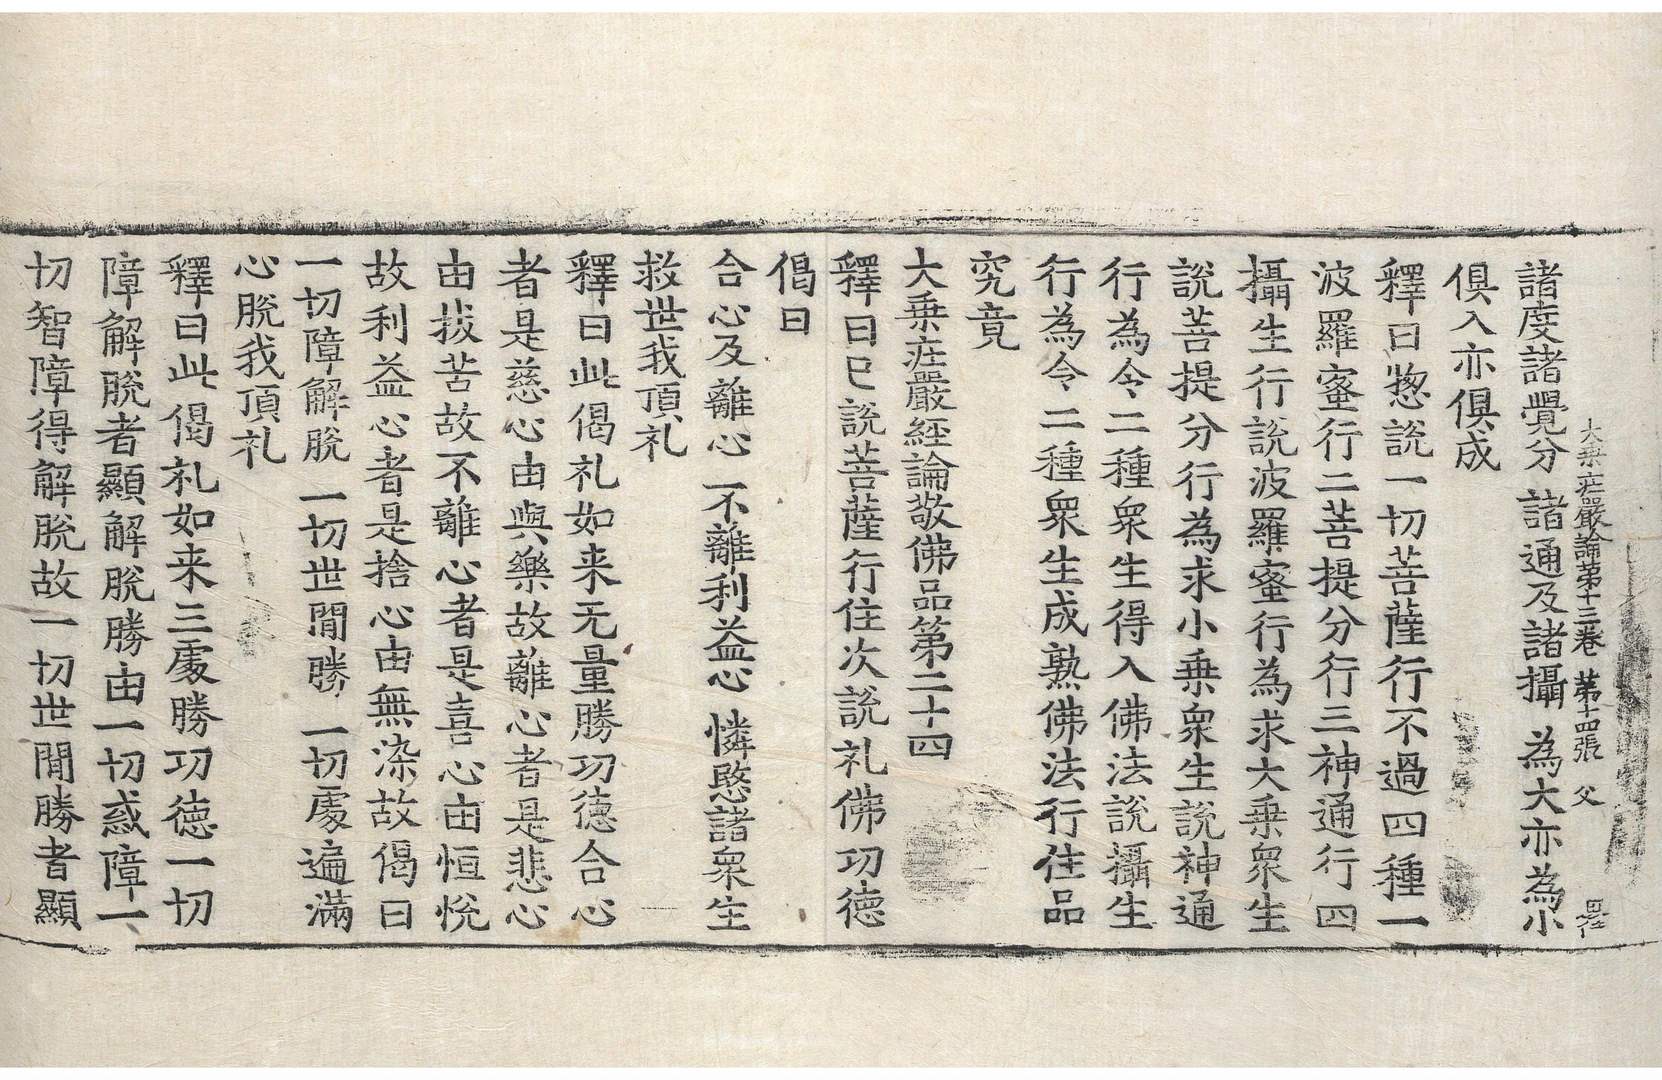 大乗庄嚴論苐十三卷 苐十四張 父
諸度諸覺分 諸通及諸攝 為大亦為小
俱入亦俱成
釋曰惣說一切菩薩行不過四種一
波羅蜜行二菩提分行三神通行四
攝生行說波羅蜜行為求大乗衆生
說菩提分行為求小乗衆生說神通
行為令二種衆生得入佛法說攝生
行為令二種衆生成熟佛法行住品
究竟
大乗庄嚴經論敬佛品第二十四
釋曰已說菩薩行住次說礼佛功德
偈曰
合心及離心 不離利益心 憐愍諸衆生
救世我頂礼
釋曰此偈礼如来无量勝功德合心
者是慈心由與樂故離心者是悲心
由拔苦故不離心者是喜心由恒悅
故利益心者是捨心由無染故偈曰
一切障解脫 一切世間勝 一切處遍滿
心脫我頂礼
釋曰此偈礼如来三處勝功德一切
障解脫者顯解脫勝由一切惑障一
切智障得解脫故一切世間勝者顯